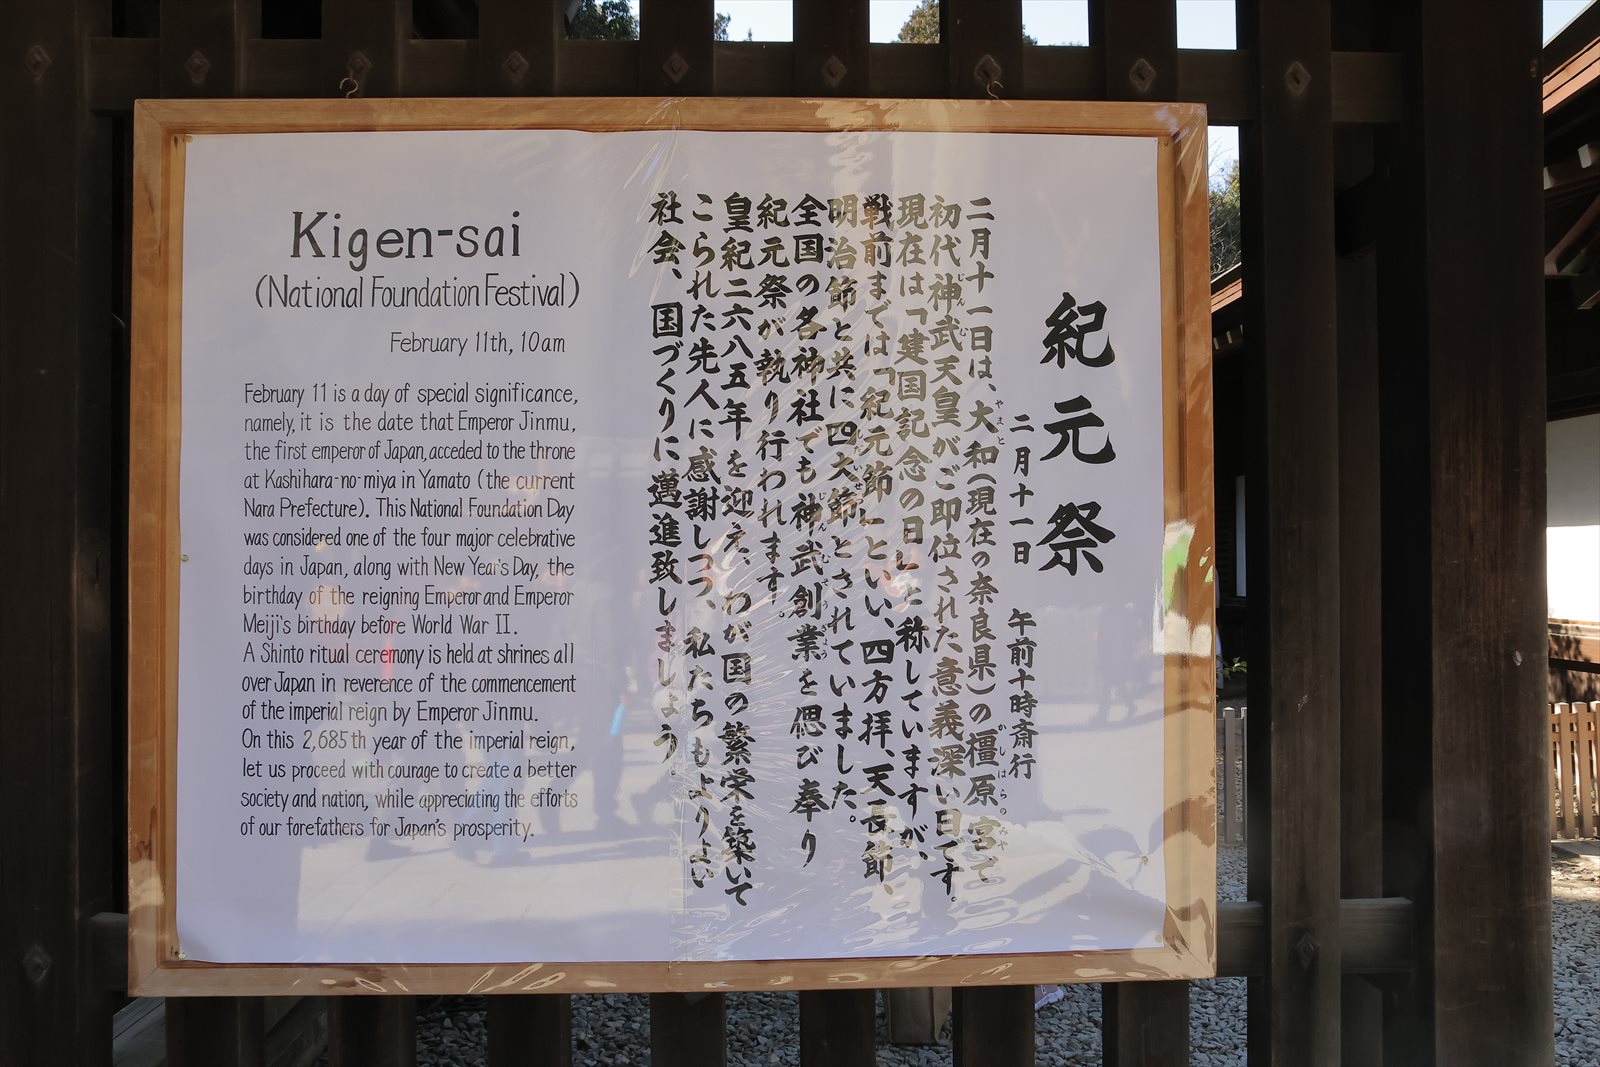 Kigen-sai
(National Foundation Festival)
February 11th, 10am
February 11 is a day of special significance,
namely, it is the date that Emperor Jinmu,
the first emperor of Japan, acceded to the throne
at Kashihara-no-miya in Yamato (the current
Nara Prefecture). This National Foundation Day
was considered one of the four major celebrative
days in Japan, along with New Year's Day, the
birthday of the reigning Emperor and Emperor
Meiji's birthday before World War II.
A Shinto ritual ceremony is held at shrines all
over Japan in reverence of the commencement
of the imperial reign by Emperor Jinmu.
On this 2,685th year of the imperial reign,
let us proceed with courage to create a better
society and nation, while appreciating the efforts
of our forefathers for Japan's prosperity.
紀元祭
二月十一日 午前十時斎行
二月十一日は、大和(現在の奈良県)の橿原宮で
初代神武天皇がご即位された意義深い日です。
現在は「建国記念の日」と称していますが、
戦前までは「紀元節」といい、四方拝、天長節、
明治節と共に四大節とされていました。
全国の各神社でも神武創業を偲び奉り
紀元祭が執り行われます。
皇紀二六八五年を迎え、わが国の繁栄を築いて
こられた先人に感謝しつつ、私たちもよりよい
社会、国づくりに邁進致しましょう。